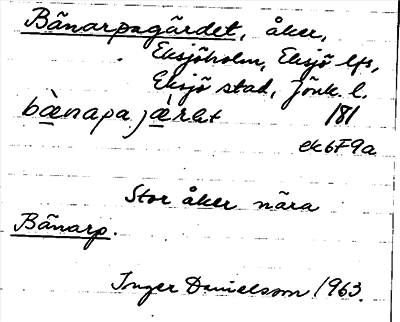 Bänarpagärdet, åker,
Eksjöholm, Eksjö lfs,
Eksjö stad, Jönk. l.
bæ̀napa jæ̀rət 181
ek6F9a
Stor åker nära
Bänarp.
Inger Danielsson 1963.